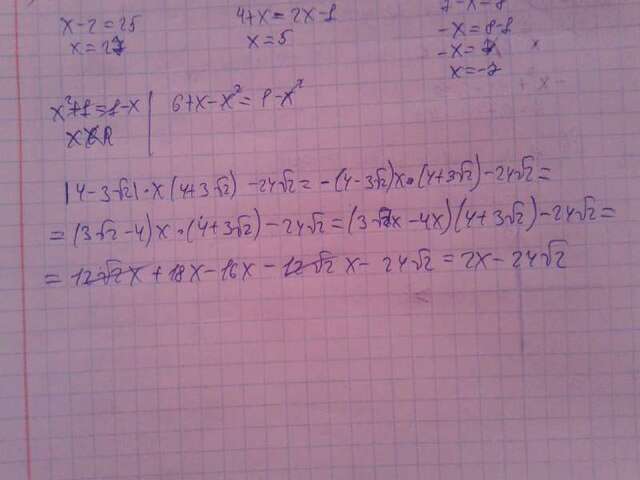 x-2=25
x=27
4+x=2x-1
x=5
7-x=8
-x=8-7
x=-7
x²+1=1-x
6+x-x²=1-x²
|4-3√2|·x(4+3√2)-24√2=-(4-3√2)x·(4+3√2)-24√2=
=(3√2-4)x·(4+3√2)-24√2=(3√2x-4x)(4+3√2)-24√2=
=12√2x+18x-16x-12√2x-24√2=2x-24√2